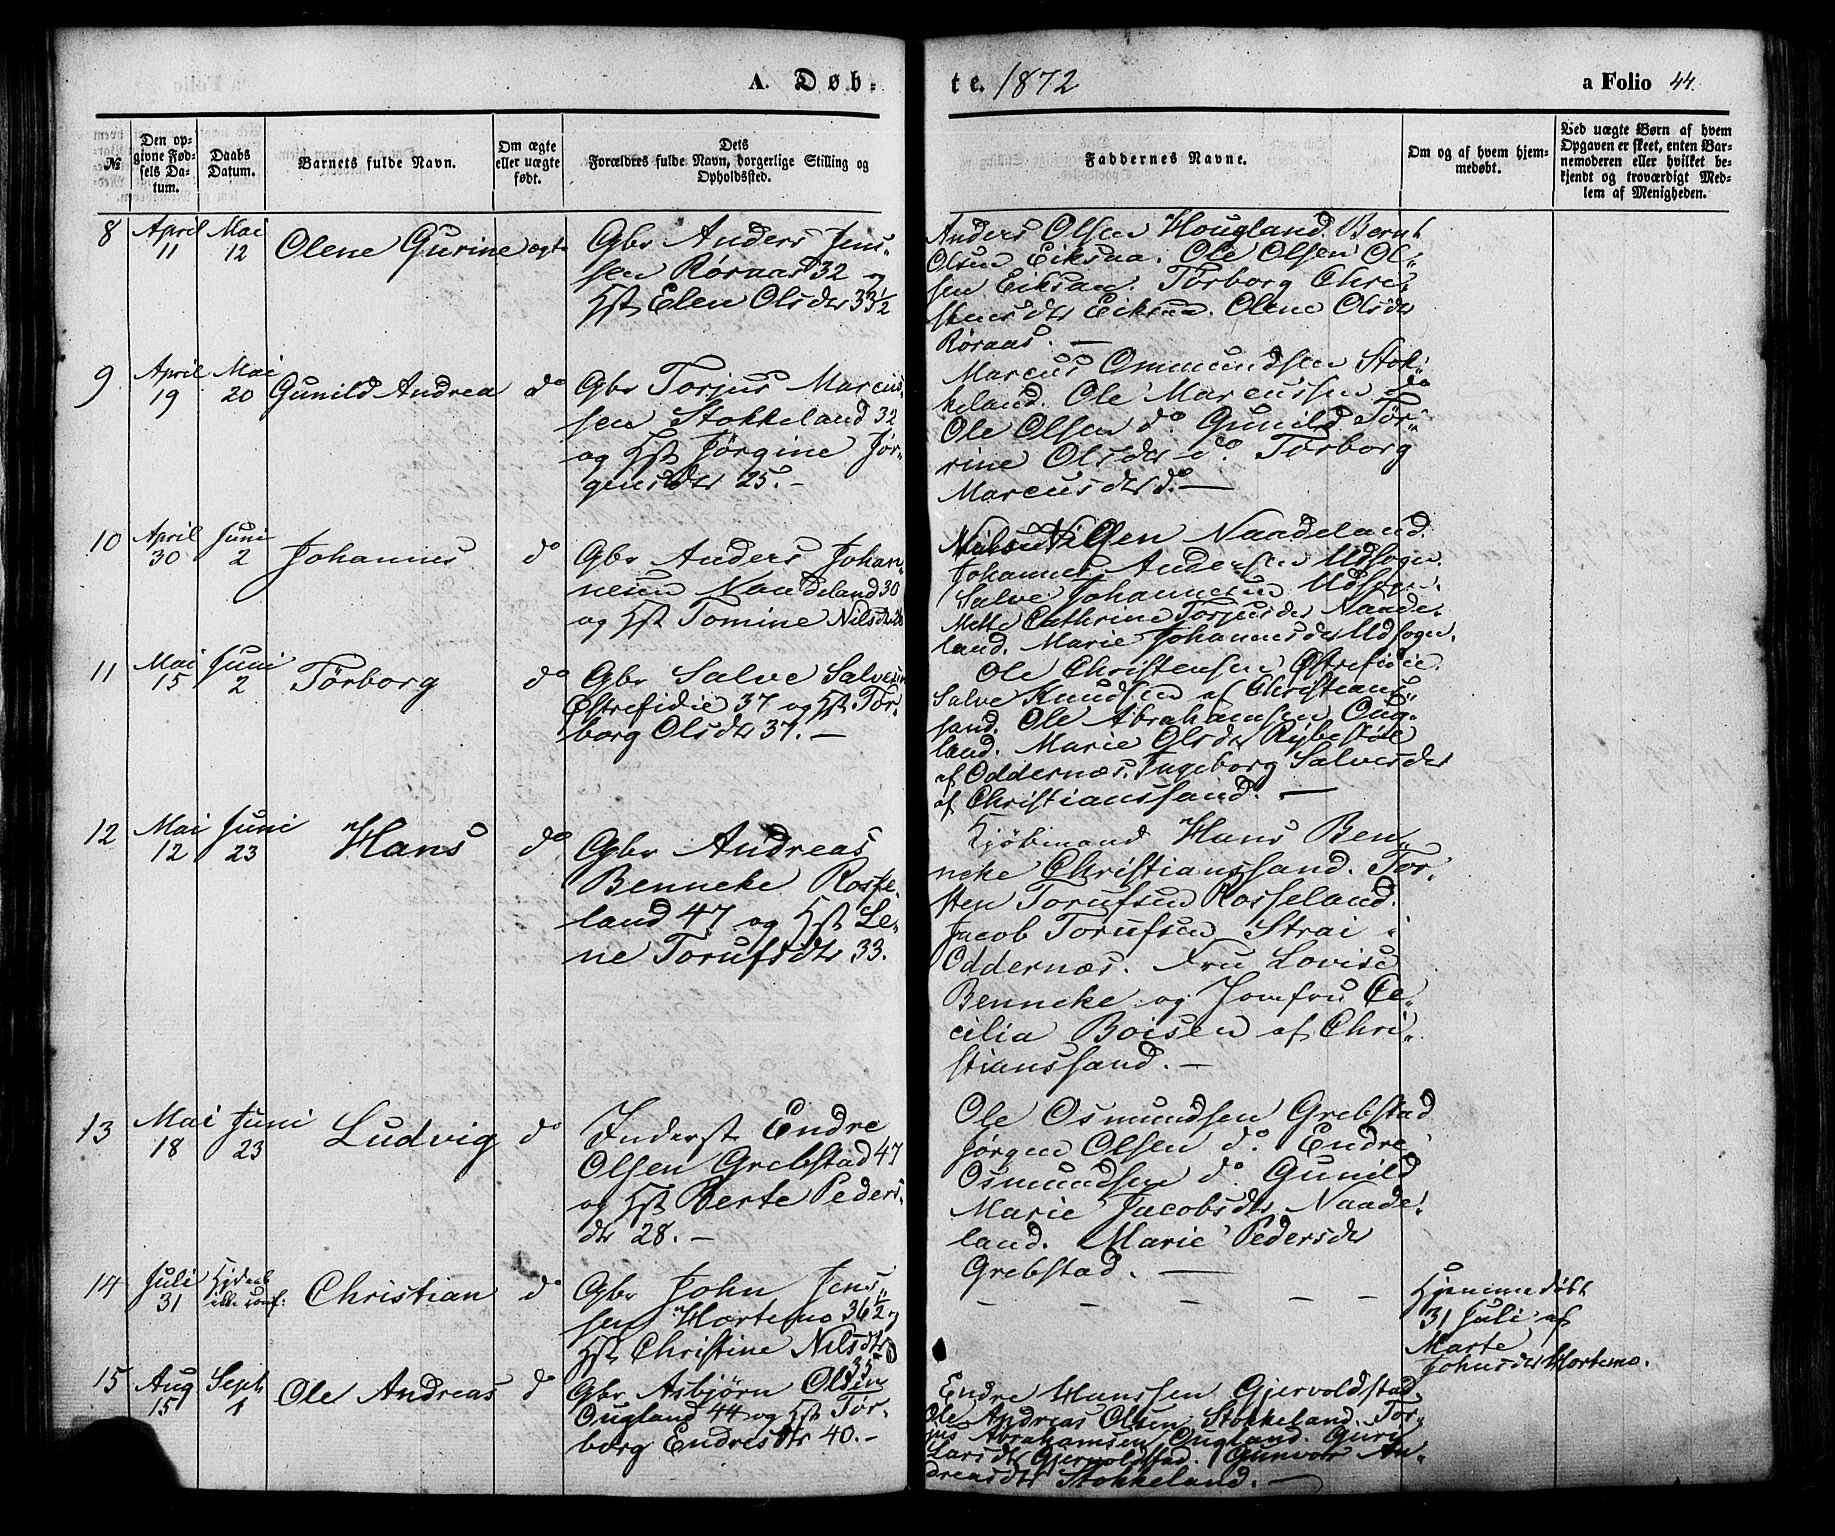 A. Døb-
te. 1872
a Folio 44.
№
Den opgivne Fødsels Datum.
Daabs Datum.
Barnets fulde Navn.
Om ægte eller uægte født.
Dets Forældres fulde Navn, borgerlige Stilling og Opholdssted.
Faddernes Navne.
Om og af hvem hjemmedøbt.
Ved uægte Børn af hvem Opgaven er skeet, enten Barnemoderen eller hvilket bekjendt og troværdigt Medlem af Menigheden.
8 April 11 Mai 12 Olene Gurine ægte
Gbr Anders Jens-
sen Røraas 32 og
Hst Elen Olsdtr 33½
Anders Olsen Hougland. Bernt
Olsen Eiksaa. Ole Olsen Ol-
sen Eiksaa. Torborg Chri-
stensdtr Eiksaa. Olene Olsdtr
Røraas. —
9 April 19 Mai 20 Gunild Andrea do
Gbr Torjus Marcus-
sen Stokkeland 32
og Hst Jørgine Jør-
gensdtr 25. —
Marcus Ommundsen Stok-
keland. Ole Marcussen do
Ole Olsen do. Gunild Tor-
rine Olsdtr do Torborg
Marcusdtr do. —
10 April 30 Juni 2 Johannes do
Gbr Anders Johan-
nesen Naadeland 30
og Hst Tomine Nilsdtr
Olsen Naadeland.
Johannes Andersen Udsogn.
Salve Johannesen Udsogn.
Mette Cathrine Torjusdtr Naade-
land. Marie Johannesdtr Udsogn.
11 Mai 15 Juni 2 Torborg do
Gbr Salve Salvesen
Østrefidie 37 og Hst Tor-
borg Olsdtr 37. —
Ole Christensen Østrefidie.
Salve Knudsen af Christians-
sand. Ole Abrahamsen Oug-
land. Marie Olsdtr Rybestøl
af Oddernæs. Ingeborg Salvesdtr
af Christianssand. —
12 Mai 12 Juni 23 Hans do
Gbr Andreas
Benneke Rosse-
land 47 og Hst Le-
ne Torufsdtr 33.
Kjøbmand Hans Ben-
neke Christianssand. Tor-
sten Torufsen Rosseland.
Jacob Torufsen Strai i
Oddernæs. Fru Lovise
Benneke og Jomfru Ce-
cilia Boisen af Chri-
stianssand. —
13 Mai 18 Juni 23 Ludvig do
Inderst Endre
Olsen Grebstad 47
og Hst Berte Peders-
dtr 28. —
Ole Osmundsen Grebstad
Jørgen Olsen do. Endre
Osmundsen do. Gunild
Marie Jacobsdtr Naade-
land. Marie Pedersdtr
Grebstad. —
14 Juli 31 Hjdaab ikke conf: Christian do
Gbr John Jens-
sen Hortemo 36½ og
Hst Christine Nilsdtr
35
— — — — —
Hjemmedøbt
31 Juli af
Marte
Johnsdtr Hortemo.
15 Aug 15 Septb 1 Ole Andreas do
Gbr Asbjørn Olsen
Ougland 44 og Hst Tor-
borg Endresdtr 40. —
Endre Hanssen Gjervoldstad.
Ole Andreas Olsen Stokkeland. Tor-
jus Abrahamsen Ougland. Guri
Larsdtr Gjervoldstad. Gunvor An-
dreasdtr Stokkeland. —